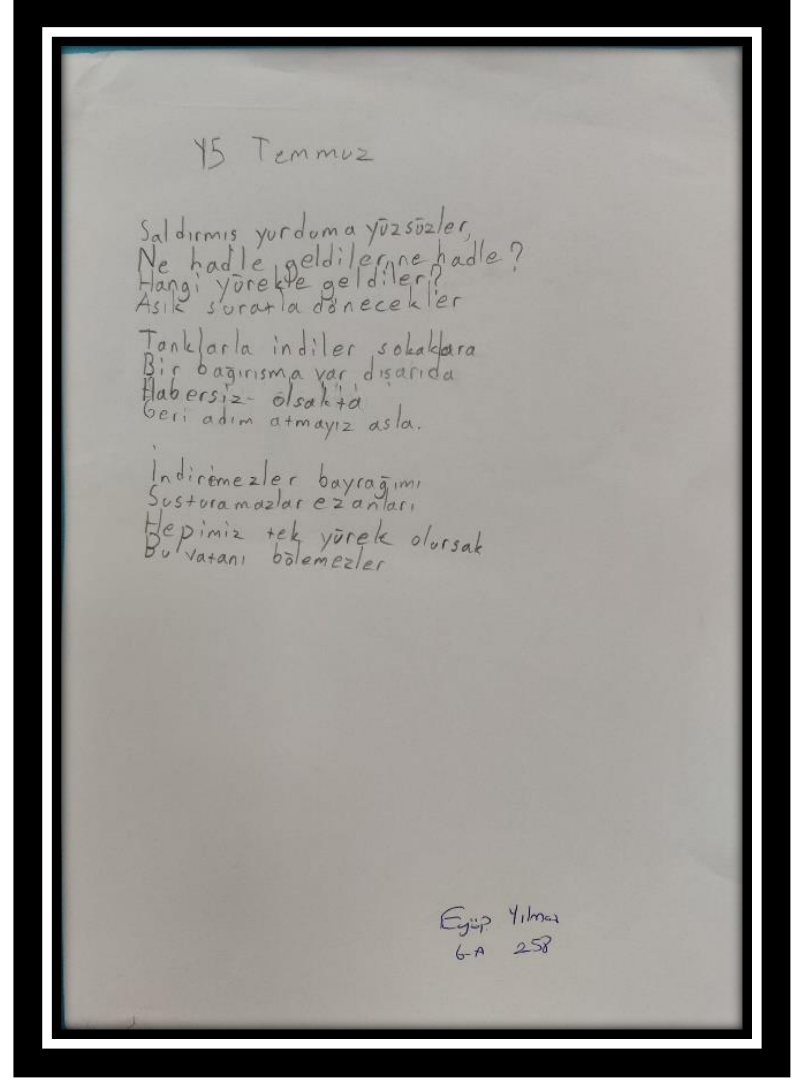 15 Temmuz
Saldırmış yurduma yüzsüzler,
Ne hadle geldiler, ne hadle?
Hangi yürekle geldiler?
Asık suratla dönecekler
Tanklarla indiler sokaklara
Bir bağırışma var dışarıda
Habersiz olsakta
Geri adım atmayız asla.
İndiremezler bayrağımı
Susturamazlar ezanları
Hepimiz tek yürek olursak
Bu vatanı bölemezler
Eyüp Yılmaz
6-A 258